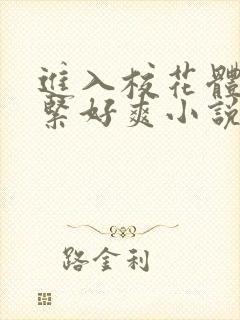 進入校花體
緊好爽小說
路金利